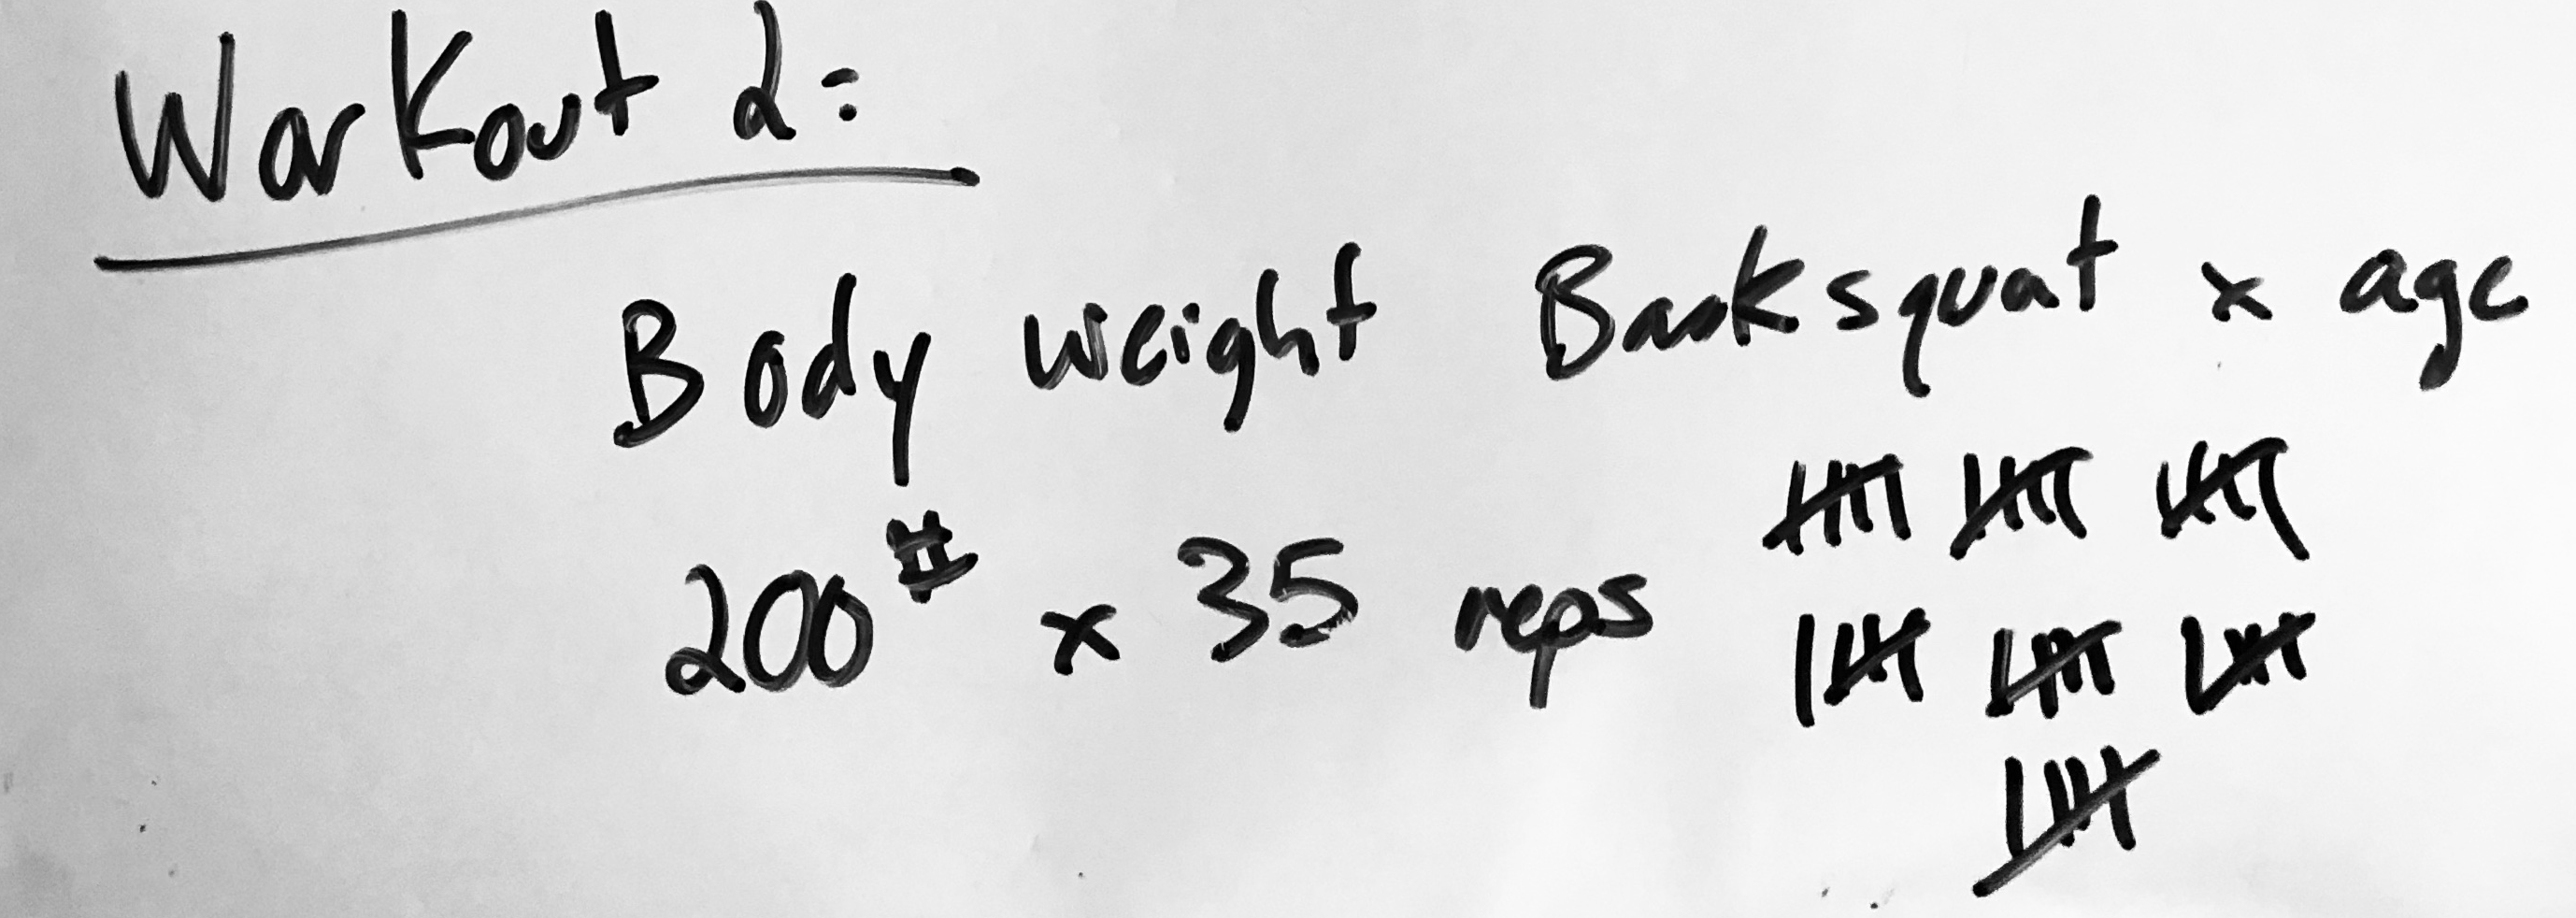 Workout 2:
Body weight Back squat x age
200# x 35 reps